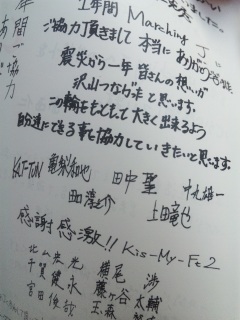 1年間 Marching J に
ご協力頂きまして 本当に ありがとう
震災から一年 皆さんの想いが
沢山つながったと思います。
この輪をもっともっと大きく出来るよう
的達にできる事を協力していきたいと思います。
KAT-TUN 亀梨和也 田中 聖 中丸雄一
田口淳之介 上田竜也
感謝感激!! Kis-My-Ft2
北山宏光 横尾 渉
千賀健永 藤ヶ谷太輔
宮田俊哉 玉森
年間ご協力